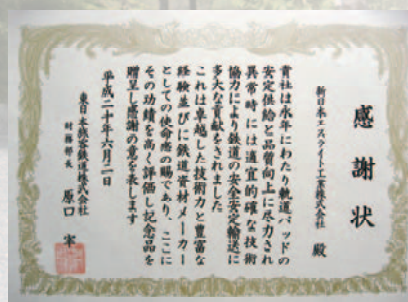 感謝状
新日本エスライト工業株式会社 殿
貴社は永年にわたり軌道パッドの
安定供給と品質向上に尽力され
異常時には適宜的確な技術
協力により鉄道の安全安定輸送に
多大な貢献をされました
これは卓越した技術力と豊富な
経験並びに鉄道資材メーカー
としての使命感の賜であり、ここに
その功績を高く評価し記念品を
贈呈し感謝の意を表します
平成二十年六月二日
東日本旅客鉄道株式会社
財務部長 原口 宰